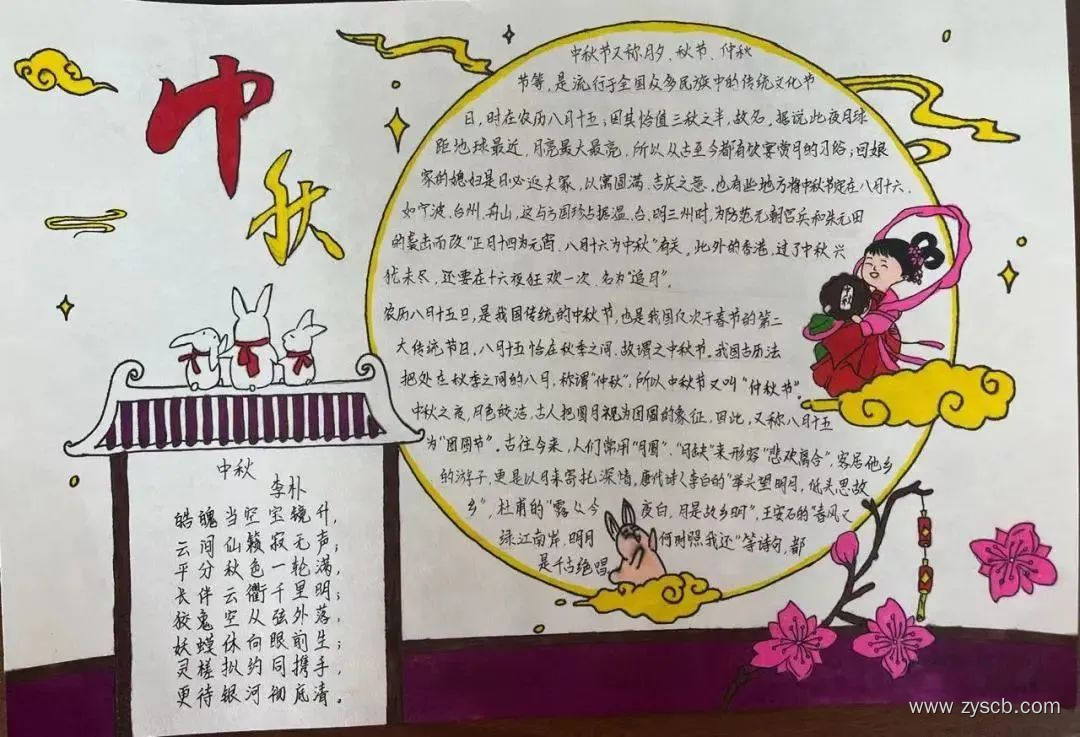 中
秋
中秋节又称月夕、秋节、仲秋
节等，是流行于全国众多民族中的传统文化节
日，时在农历八月十五；因其恰值三秋之半，故名，据说此夜月球
距地球最近，月亮最大最亮，所以从古至今都有饮宴赏月的习俗；回娘
家的媳妇是日必返夫家，以寓圆满、吉庆之意，也有些地方将中秋节定在八月十六，
如宁波、台州、舟山，这与方国珍占据温、台、明三州时，为防范元朝官兵和朱元田
的袭击而改“正月十四为元宵，八月十六为中秋”有关，此外的香港，过了中秋兴
犹未尽，还要在十六夜狂欢一次，名为“追月”。
农历八月十五日，是我国传统的中秋节，也是我国仅次于春节的第二
大传统节日，八月十五恰在秋季之间，故谓之中秋节。我国古历法
把处在秋季之间的八月，称谓“仲秋”，所以中秋节又叫“仲秋节”。
中秋之夜，月色皎洁，古人把圆月视为团圆的象征，因此，又称八月十五
为“团圆节”。古往今来，人们常用“月圆”、“月缺”来形容“悲欢离合”，客居他乡
的游子，更是以月来寄托深情，唐代诗人李白的“举头望明月，低头思故
乡”，杜甫的“露从今夜白，月是故乡明”，王安石的“春风又
绿江南岸，明月何时照我还”等诗句，都
是千古绝唱
中秋
李朴
皓魄当空宝镜升，
云间仙籁寂无声；
平分秋色一轮满，
长伴云衢千里明；
狡兔空从弦外落，
妖蟆休向眼前生；
灵槎拟约同携手，
更待银河彻底清。
www.zyscb.com